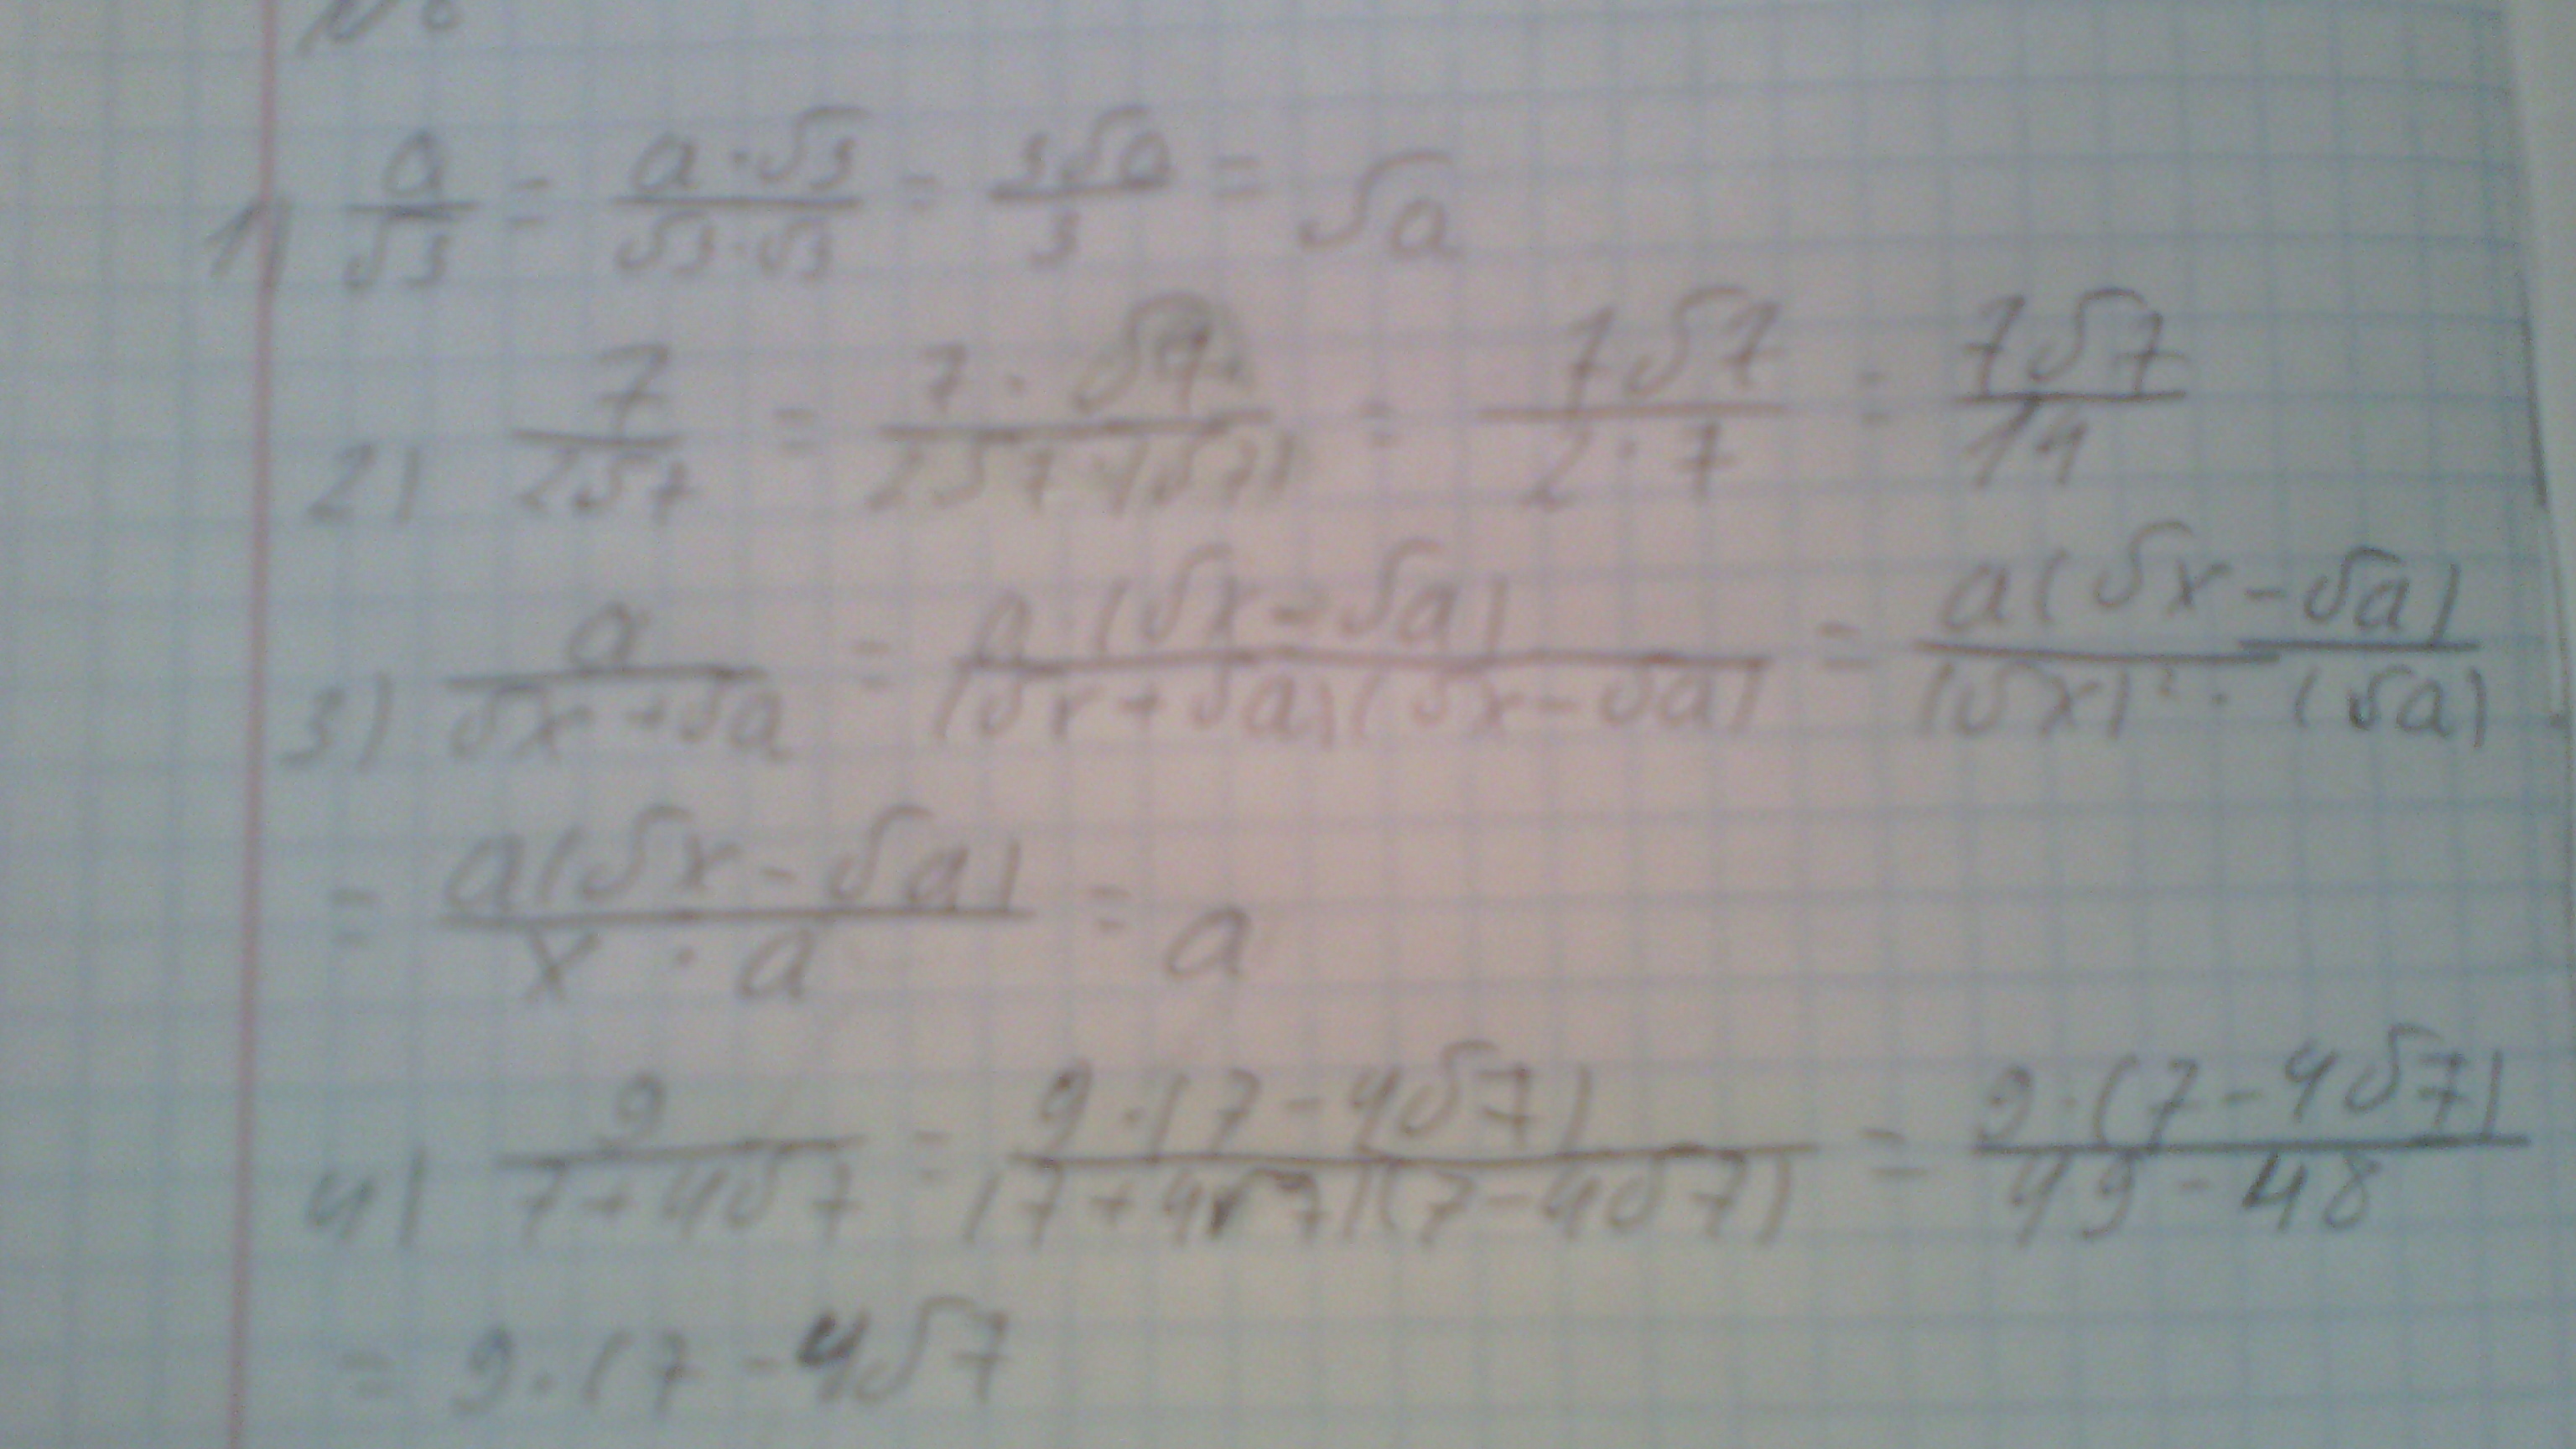 1) a/√3 = a·√3/√3·√3 = 3√a/3 = √a
2) 7/2√7 = 7·√7/2√7·(√7) = 7√7/2·7 = 7√7/14
3) a/√x+√a = a·(√x-√a)/(√x+√a)(√x-√a) = a(√x-√a)/(√x)²·(√a)
= a(√x-√a)/x·a = a
4) 9/7+4√7 = 9·(7-4√7)/(7+4√7)(7-4√7) = 9·(7-4√7)/49-48
= 9·(7-4√7